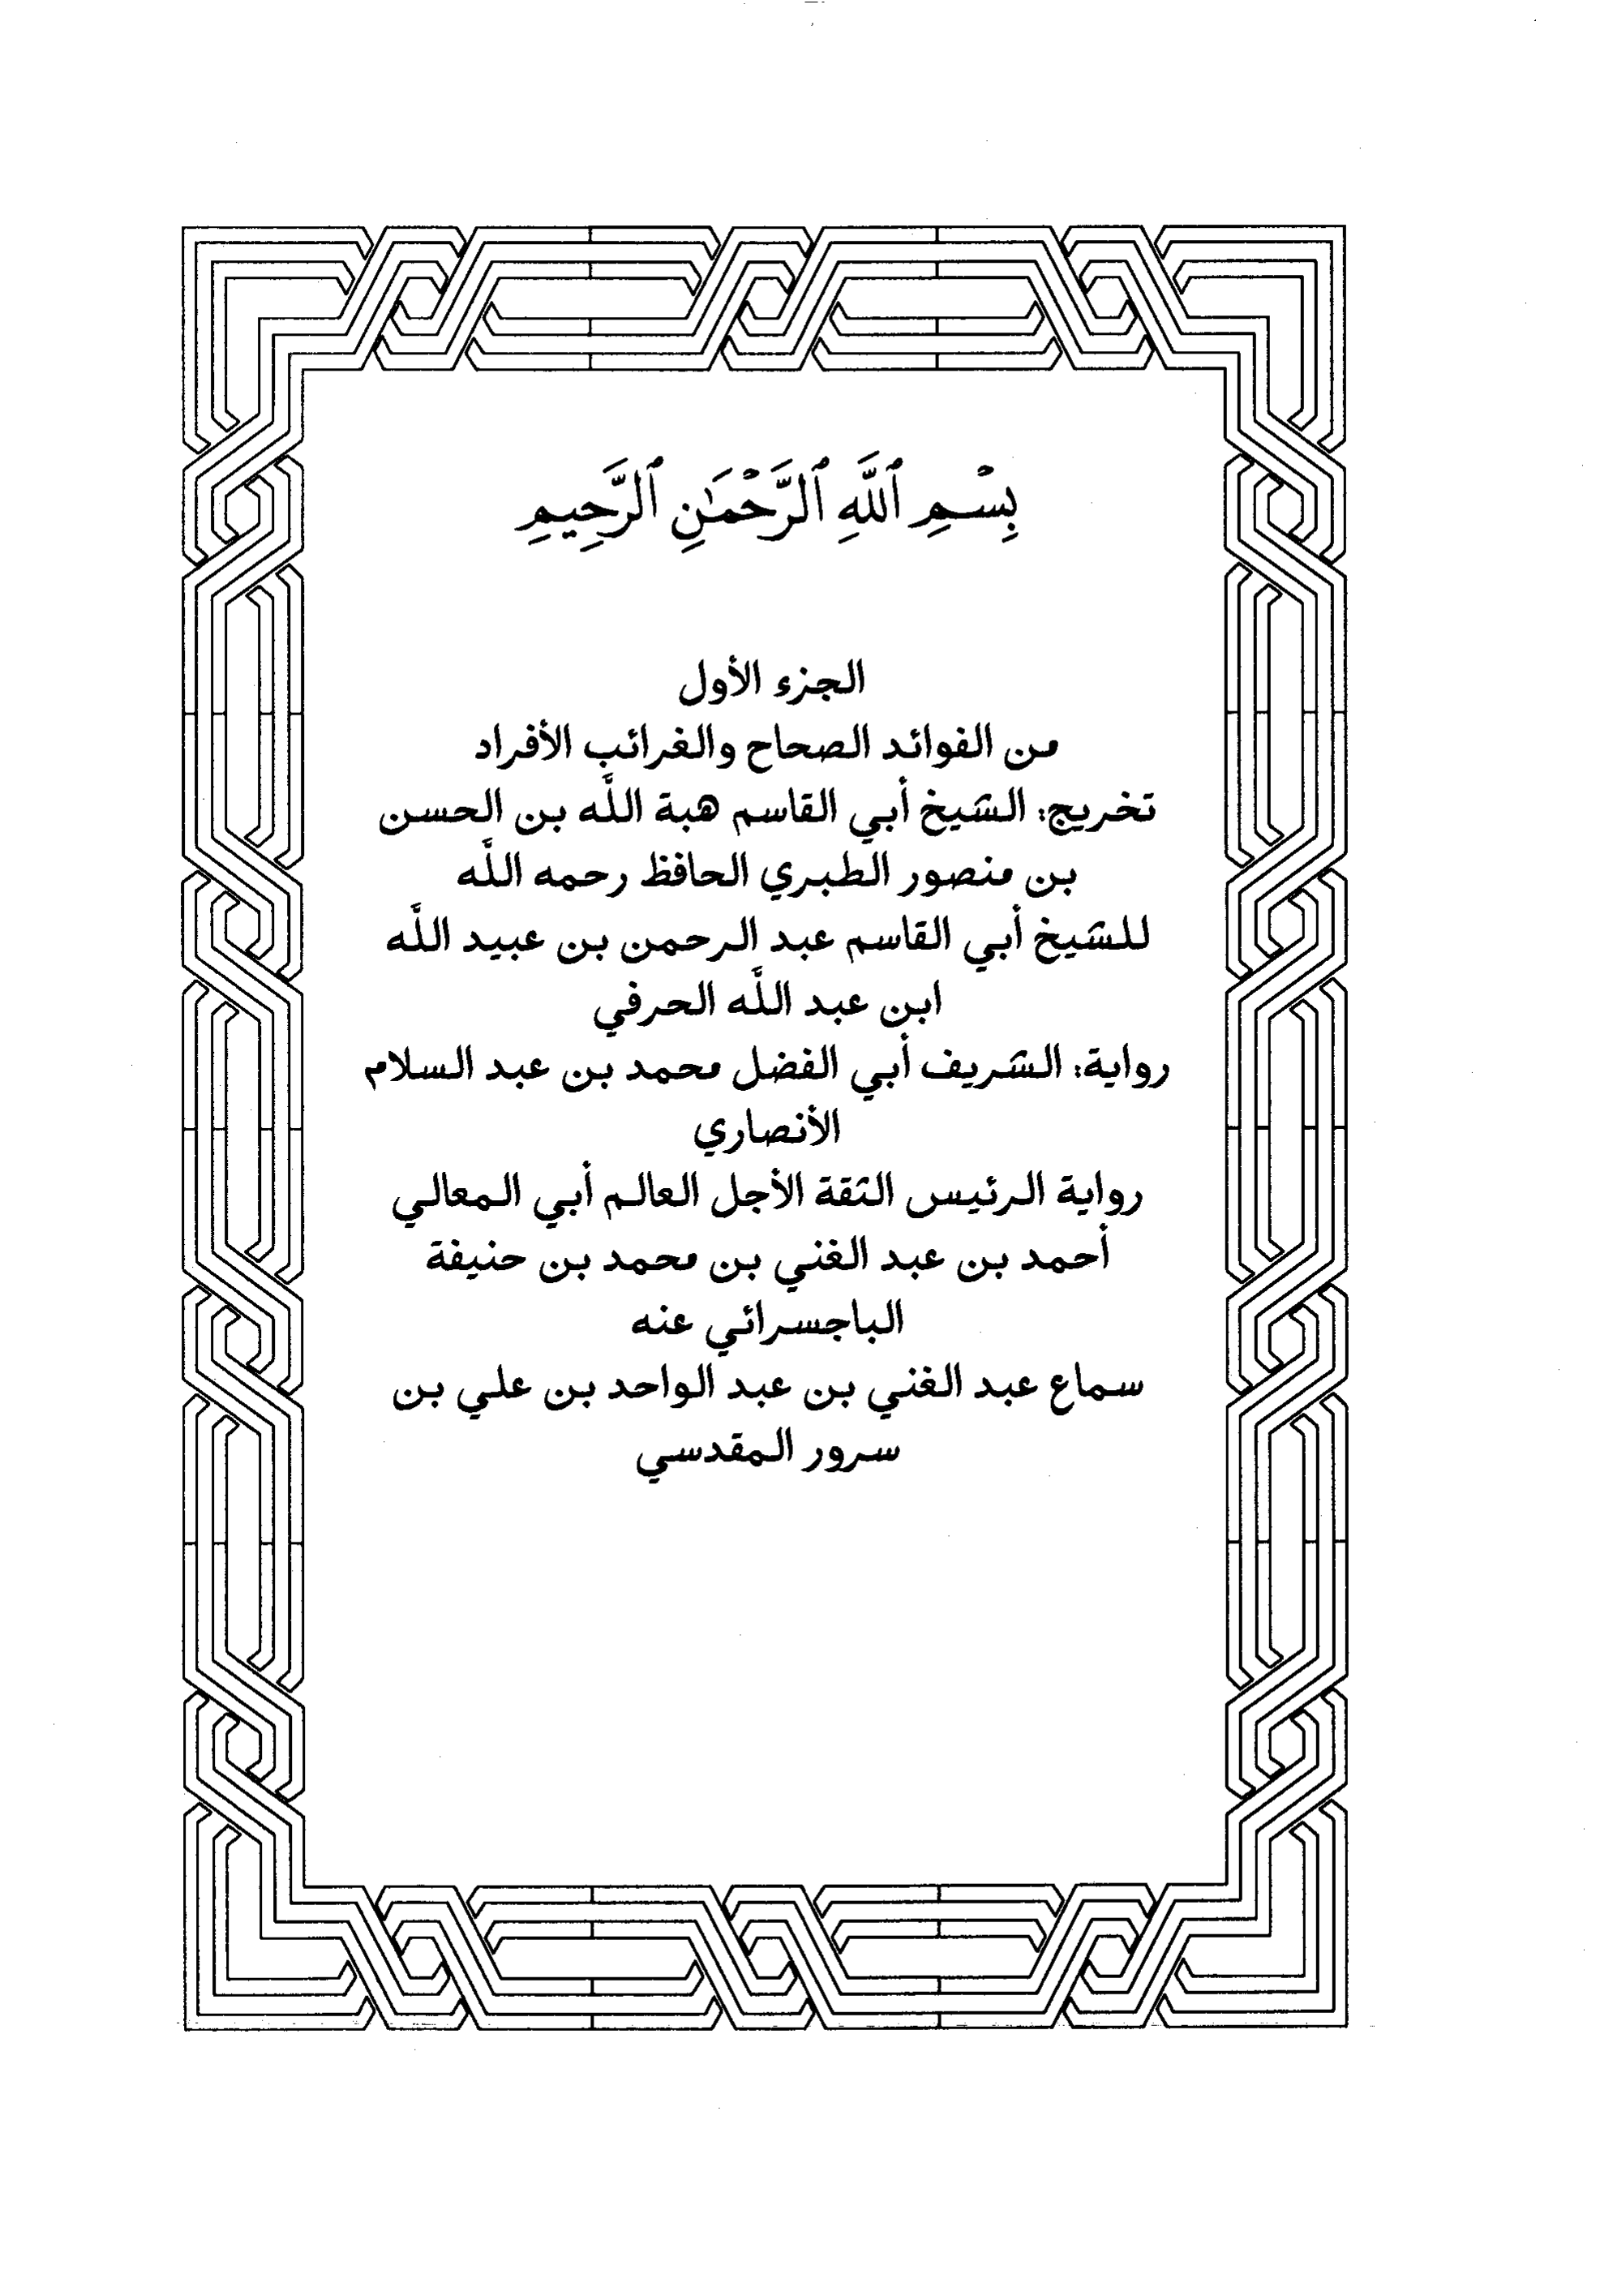 بِسْمِ ٱللَّهِ ٱلرَّحْمَٰنِ ٱلرَّحِيمِ
الجزء الأول
من الفوائد الصحاح والغرائب الأفراد
تخريج: الشيخ أبي القاسم هبة اللَّه بن الحسن
بن منصور الطبري الحافظ رحمه اللَّه
للشيخ أبي القاسم عبد الرحمن بن عبيد اللَّه
ابن عبد اللَّه الحرفي
رواية: الشريف أبي الفضل محمد بن عبد السلام
الأنصاري
رواية الرئيس الثقة الأجل العالم أبي المعالي
أحمد بن عبد الغني بن محمد بن حنيفة
الباجسرائي عنه
سماع عبد الغني بن عبد الواحد بن علي بن
سرور المقدسي